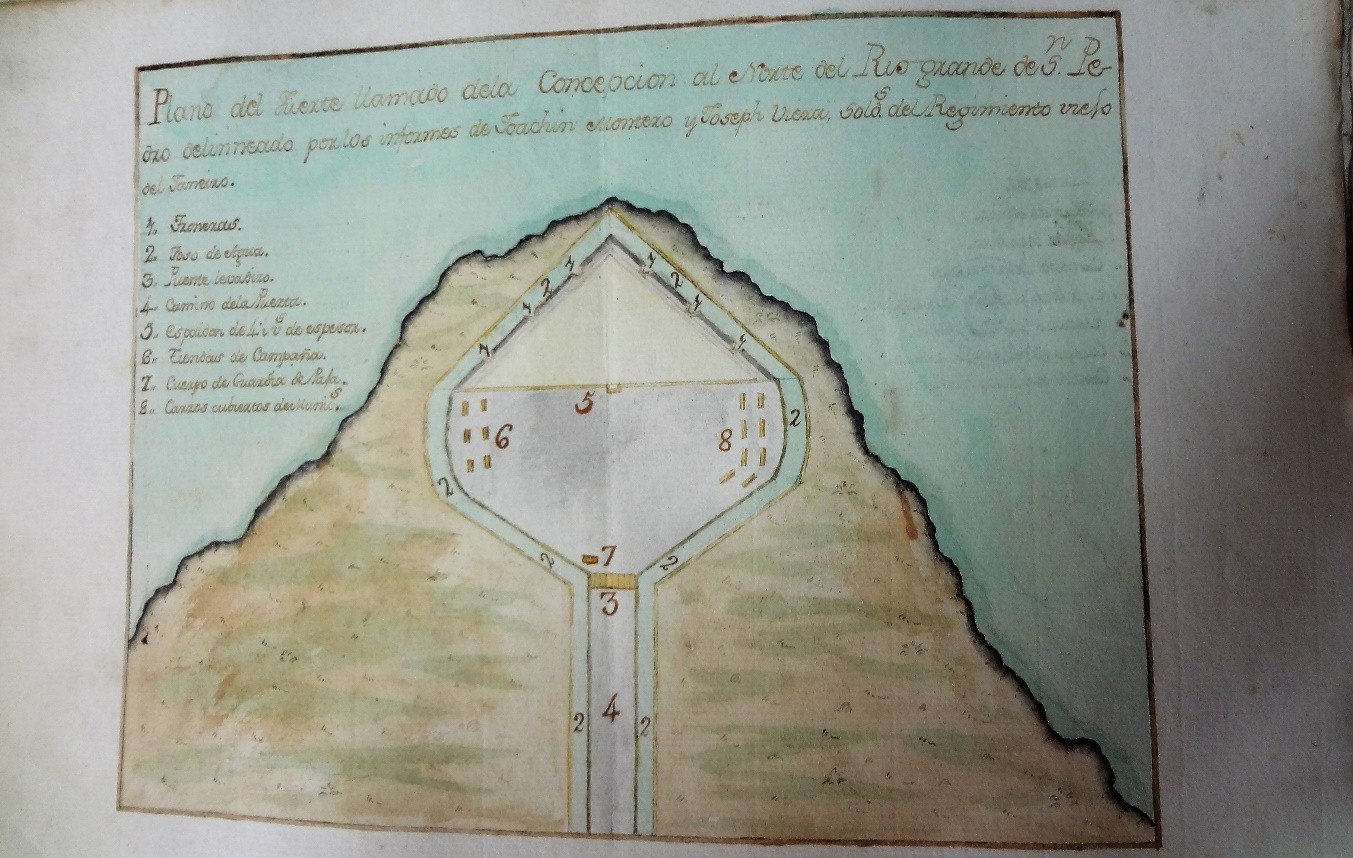 Plano del Fuerte llamado dela Concepcion al Norte del Rio grande de S.n Pe-
dro delinneado por los informes de Joachin Montero y Joseph Viera, Sold.s del Regimiento viejo
del Janeiro.
1,, Troneras.
2,, Foso de Agua.
3,, Puente levadizo.
4,, Camino dela Puerta.
5,, Espaldon de 4 v.s de espesor.
6,, Tiendas de Campaña.
7,, Cuerpo de Guardia de Paja.
8,, Carros cubiertos de Muni.s
1
1
2
2
1
1
1
1
5
2
6
8
2
2
7
2
3
4
2
2